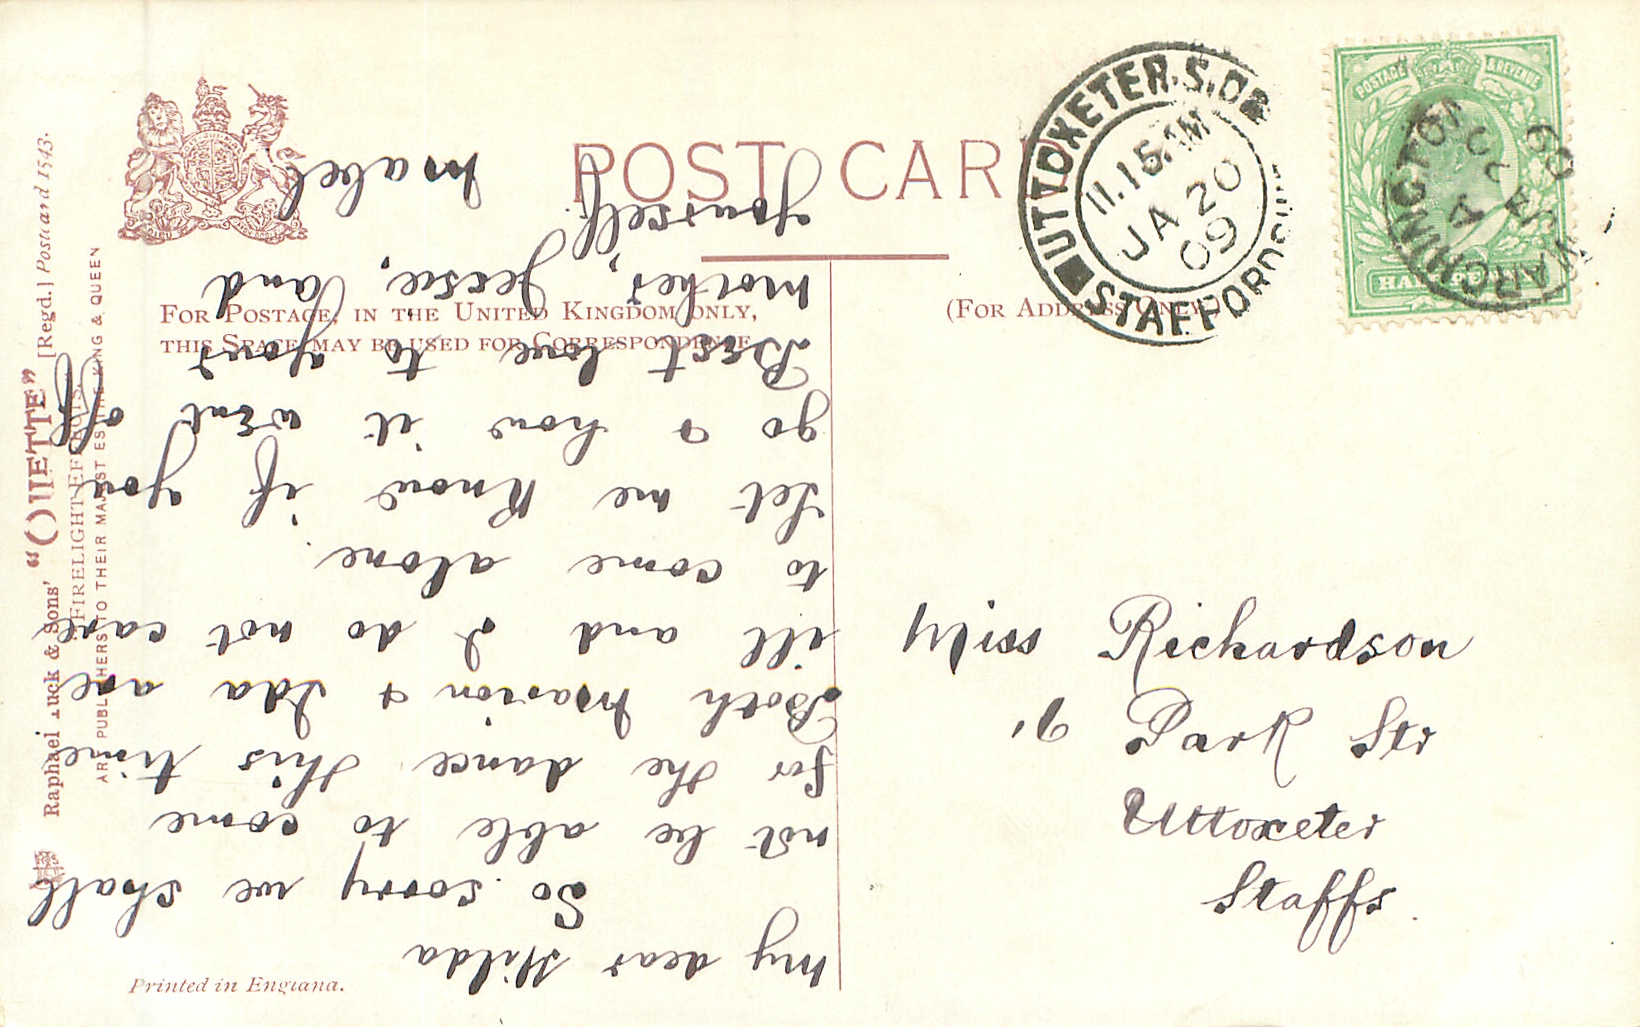 POST CARD
FOR POSTAGE, IN THE UNITED KINGDOM ONLY,
THIS SPACE MAY BE USED FOR CORRESPONDENCE
(FOR ADDRESS ONLY)
My dear Hilda
So sorry we shall
not be able to come
for the dance this time
Both Marion & Ida are
ill and I do not care
to come alone.
Let me know if you
go & how it went off
Best love to your
Mother, Jessie, and
yourself.
Mabel
Miss Richardson
16 Park Str
Uttoxeter
Staffs.
UTTOXETER.S.O
11.15 AM
JA 20
09
STAFFORDSHIRE
POSTAGE & REVENUE
HALFPENNY
MARCHINGTON
A
JA 20
09
Raphael Tuck & Sons' "OILETTE" [Regd.] Postcard 1543.
"FIRELIGHT EFFECTS.
ART PUBLISHERS TO THEIR MAJESTIES THE KING & QUEEN
Printed in England.